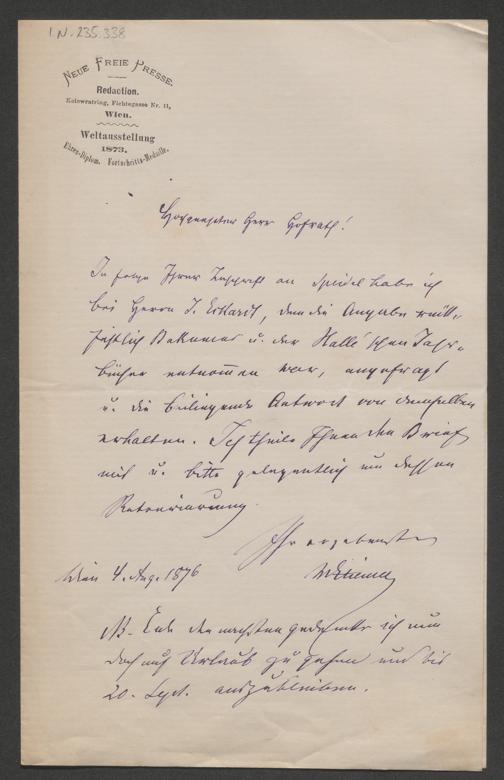 I.N. 235.338
NEUE FREIE PRESSE.
Redaction.
Kolowratring, Fichtegasse Nr. 11,
Wien.
Weltausstellung
1873.
Ehren-Diplom. Fortschritts-Medaille.
Hochgeehrter Herr Hofrath!
In Folge Ihrer Zuschrift an Speidel habe ich
bei Herrn J. Eckardt, dem die Angabe
Bakunins u. der Halle'schen Jahr-
bücher entnommen war, angefragt
u. die beiliegende Antwort von demselben
erhalten. Ich theile Ihnen den Brief
mit u. bitte gelegentlich um dessen
Retournirung.
Ihr ergebenster
Wien 4. Aug. 1876
NB. Ende der nächsten gedenke ich nun
doch auf Urlaub zu gehen und bis
20. Sept. auszubleiben.